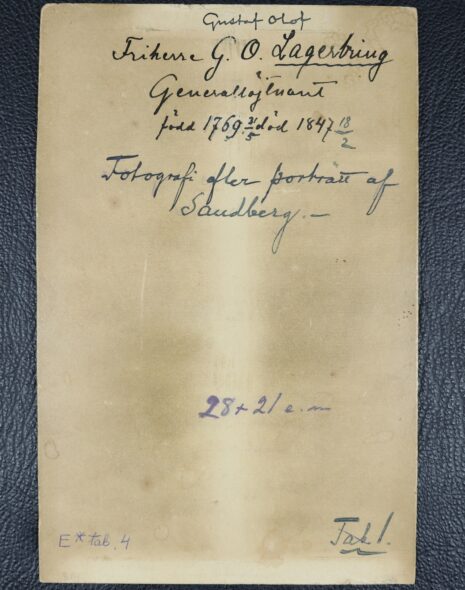 Gustaf Olof
Friherre G. O. Lagerbring
Generallöjtnant
född 1769 21/5 död 1847 18/2
Fotografi efter porträtt af
Sandberg.—
28 + 21 c. m
E* tab. 4
Tab 1.